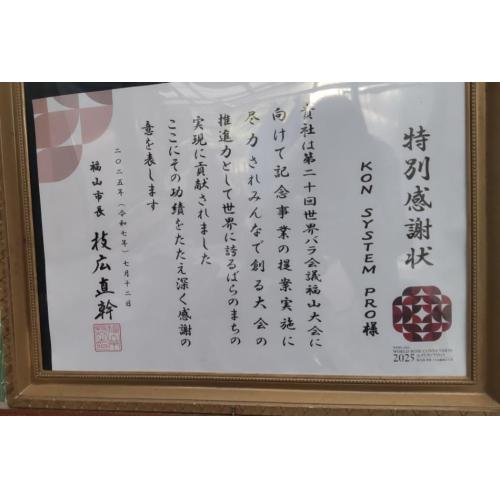 特別感謝状
KON SYSTEM PRO様
貴社は第二十回世界バラ会議福山大会に
向けて記念事業の提案実施に
尽力されみんなで創る大会の
推進力として世界に誇るばらのまちの
実現に貢献されました
ここにその功績をたたえ深く感謝の
意を表します
二〇二五年(令和七年)七月十二日
福山市長 枝広直幹
WORLD ROSE CONVENTION
2025